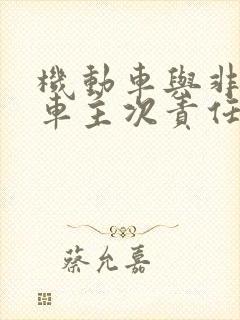 機動車與非
車主次責任
蔡允嘉